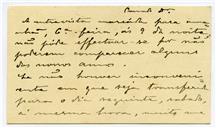 A entrevista marcada para ama-
nhã, 6ª feira, ás 9 da noite
não póde effectuar-se por não
poderem comparecer alguns
dos nossos amos.
Se não houver inconveni-
ente em que seja transferida
para o dia seguinte, sabado,
á mesma hora,